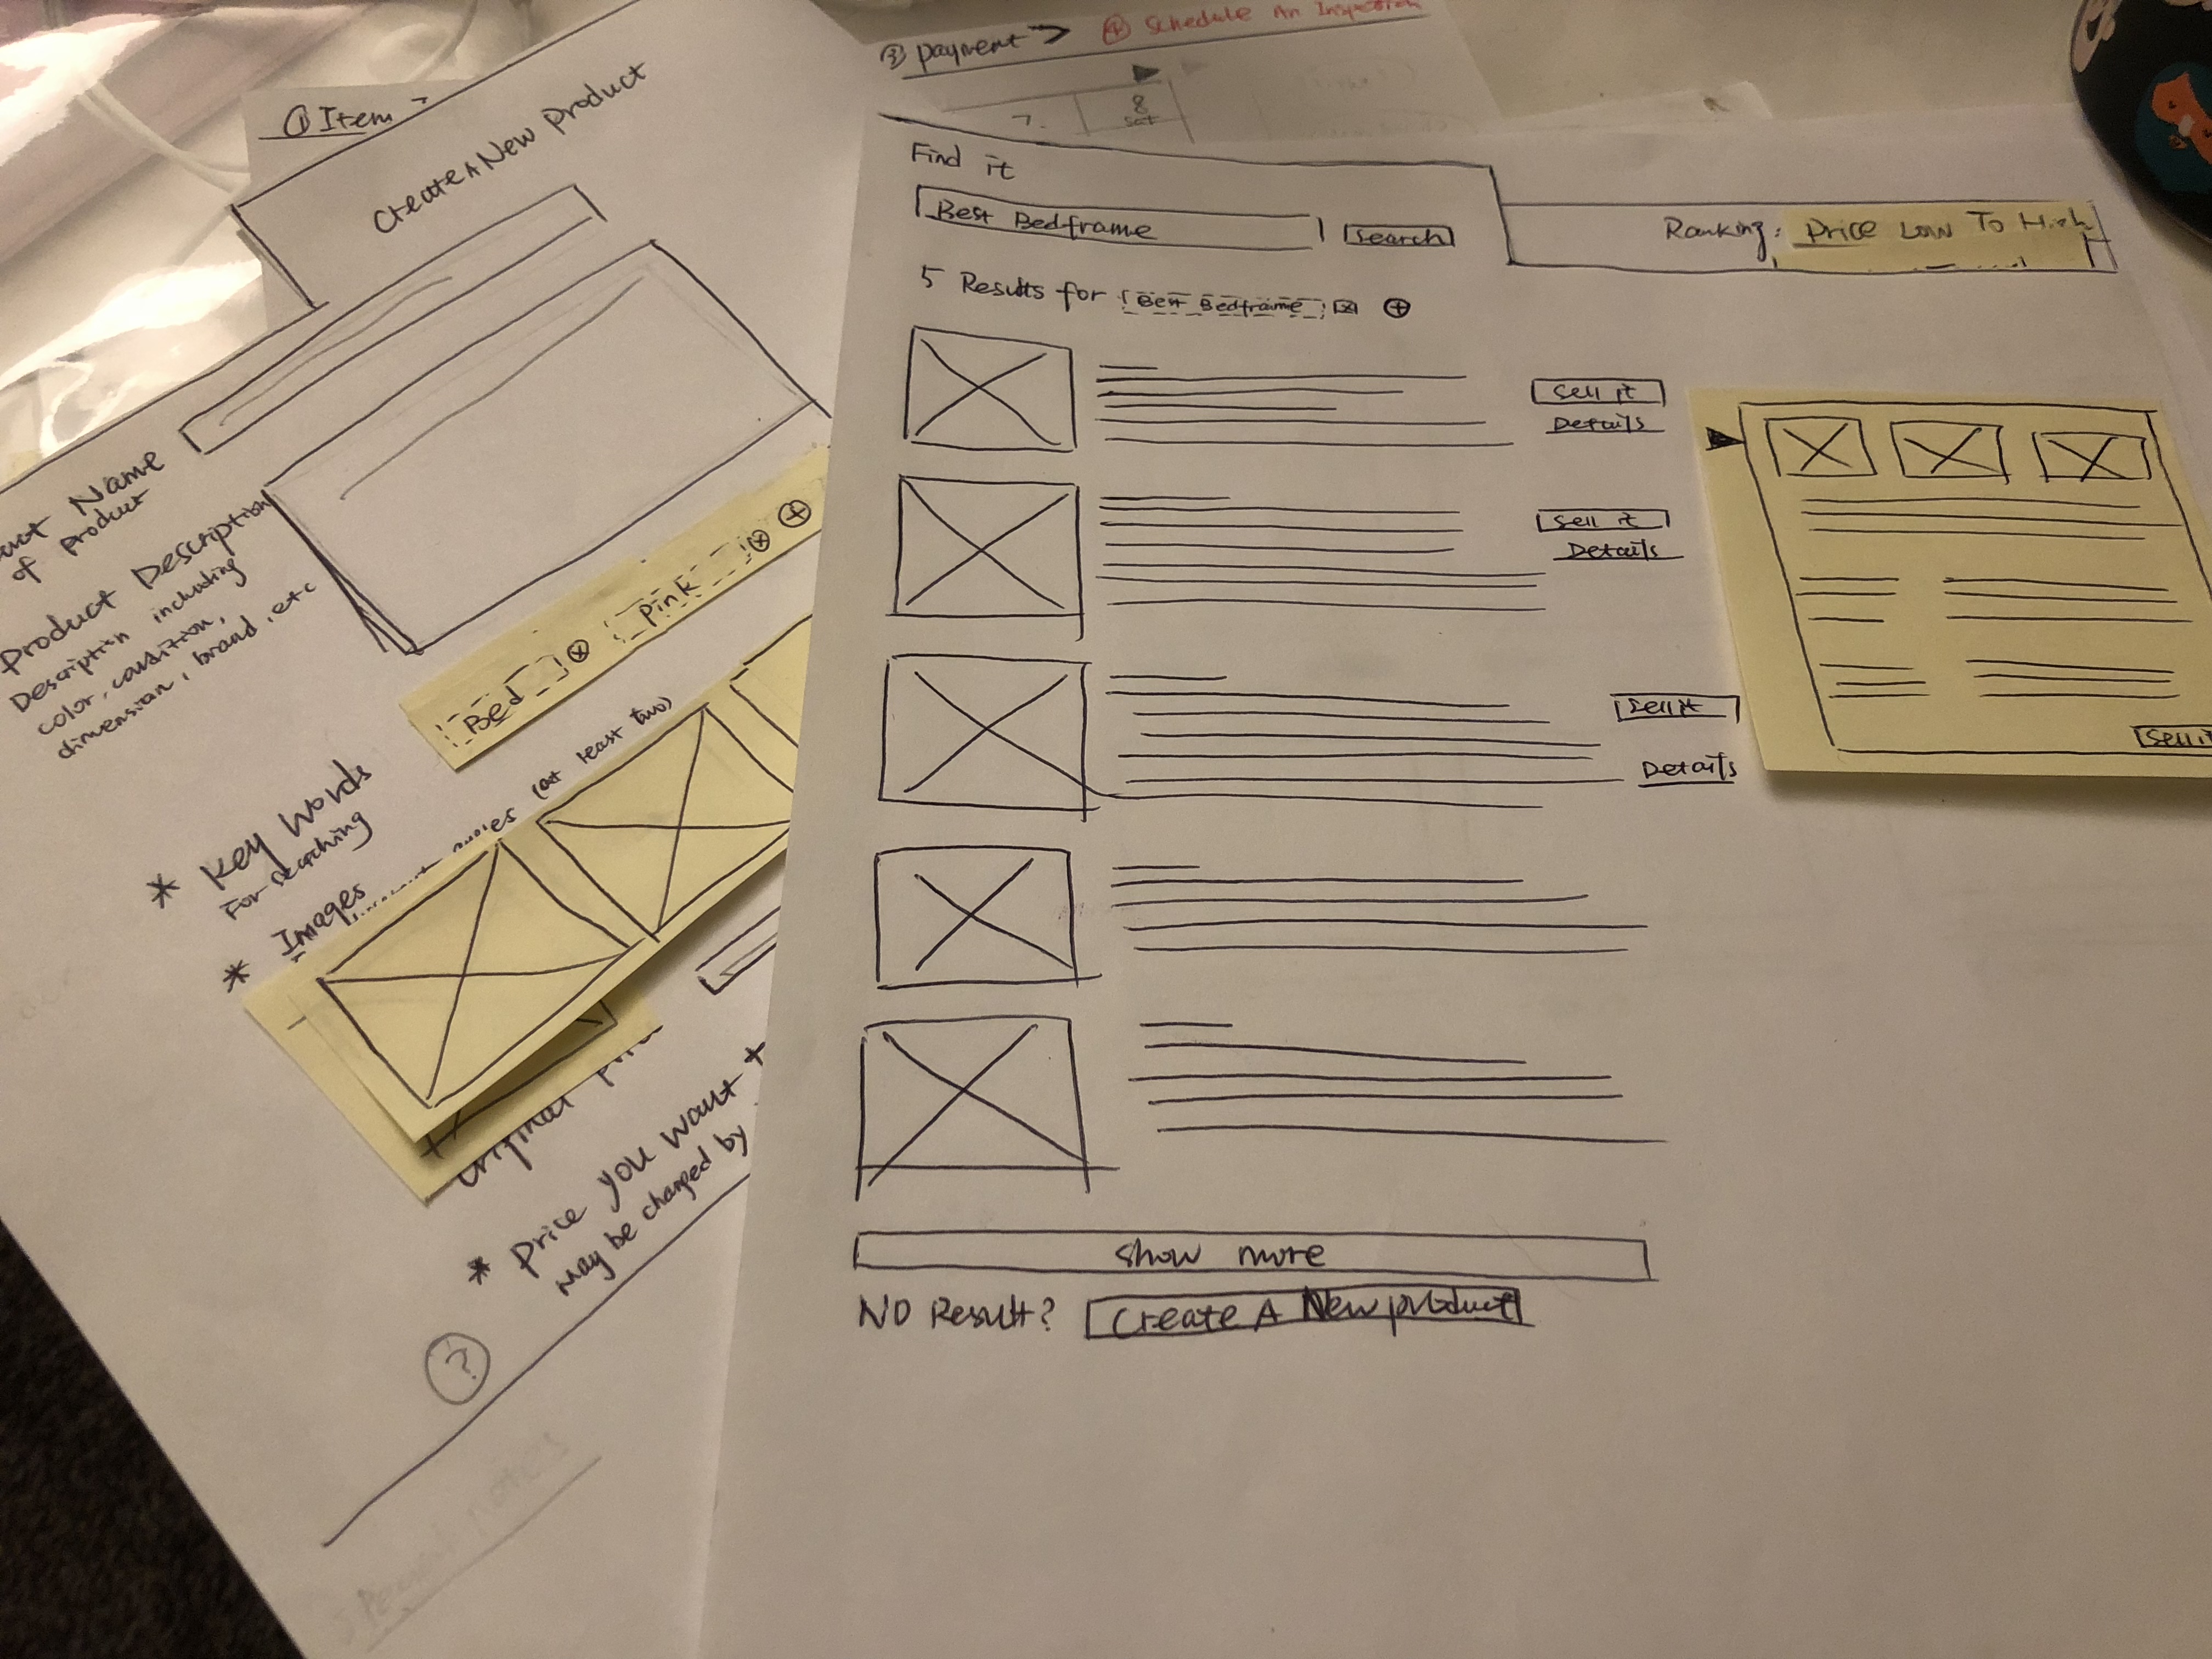 ① Item >
Create A New Product
Name
of product
Product Description
Description including
color, condition,
dimension, brand, etc
* Key Words
For searching
[Bed]
[Pink]
* Images
(at least two)
Original
* Price you want
May be changed by
?
③ payment >
④ Schedule An Inspection
7
8
Sat
Find it
Best Bedframe
Search
Ranking: Price Low To High
5 Results for [Best Bedframe]
Sell it
Details
Sell it
Details
Sell it
Details
Sell it
Show more
No Result? Create A New product